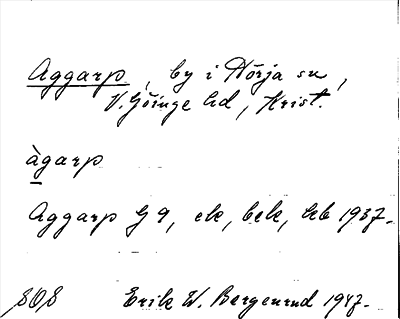 Aggarp, by i Nörja sn,
V. Göinge hd, Krist.
àgarp
Aggarp G 9, ek, bek, hb 1937.
Erik W. Bergenrud 1947.